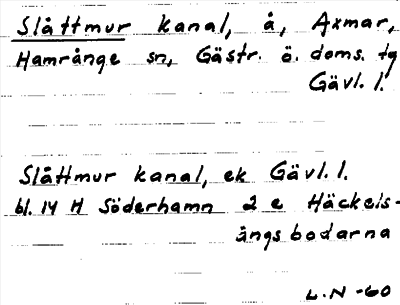 Slåttmur kanal, å, Axmar,
Hamrånge sn, Gästr. ö. doms. tg
Gävl. l.
Slåttmur kanal, ek Gävl. l.
bl. 14 H Söderhamn 2 e Häckels-
ängsbodarna
L. N -60